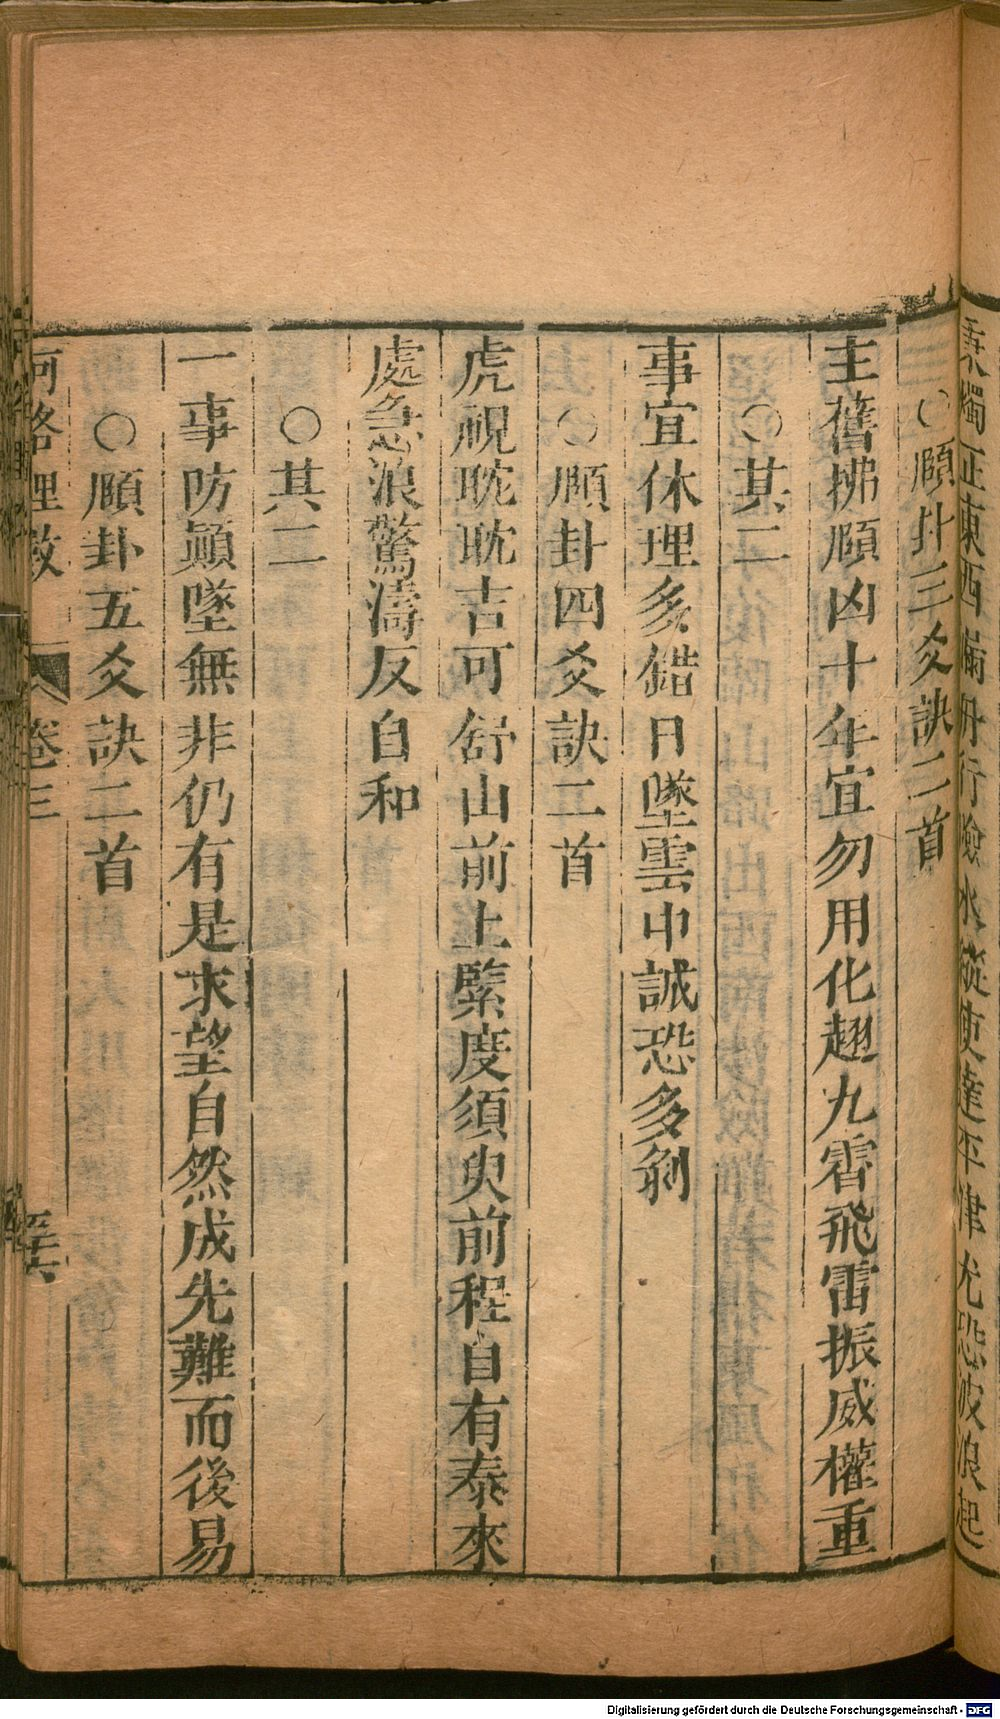 秉燭正東西滿舟行險水縱使達平津尤恐波浪起
○頤卦三爻訣二首
主舊拂頤凶十年宜勿用化趐九霄飛雷振威權重
○其二
事宜休理多錯日墜雲中誠恐多剝
○頤卦四爻訣二首
虎視眈眈吉可舒山前上緊度須臾前程自有泰來
處急浪驚濤反自和
○其二
一事防顛墜無非仍有是求望自然成先難而後易
○頤卦五爻訣二首
河洛理數 卷三
Digitalisierung gefördert durch die Deutsche Forschungsgemeinschaft - DFG